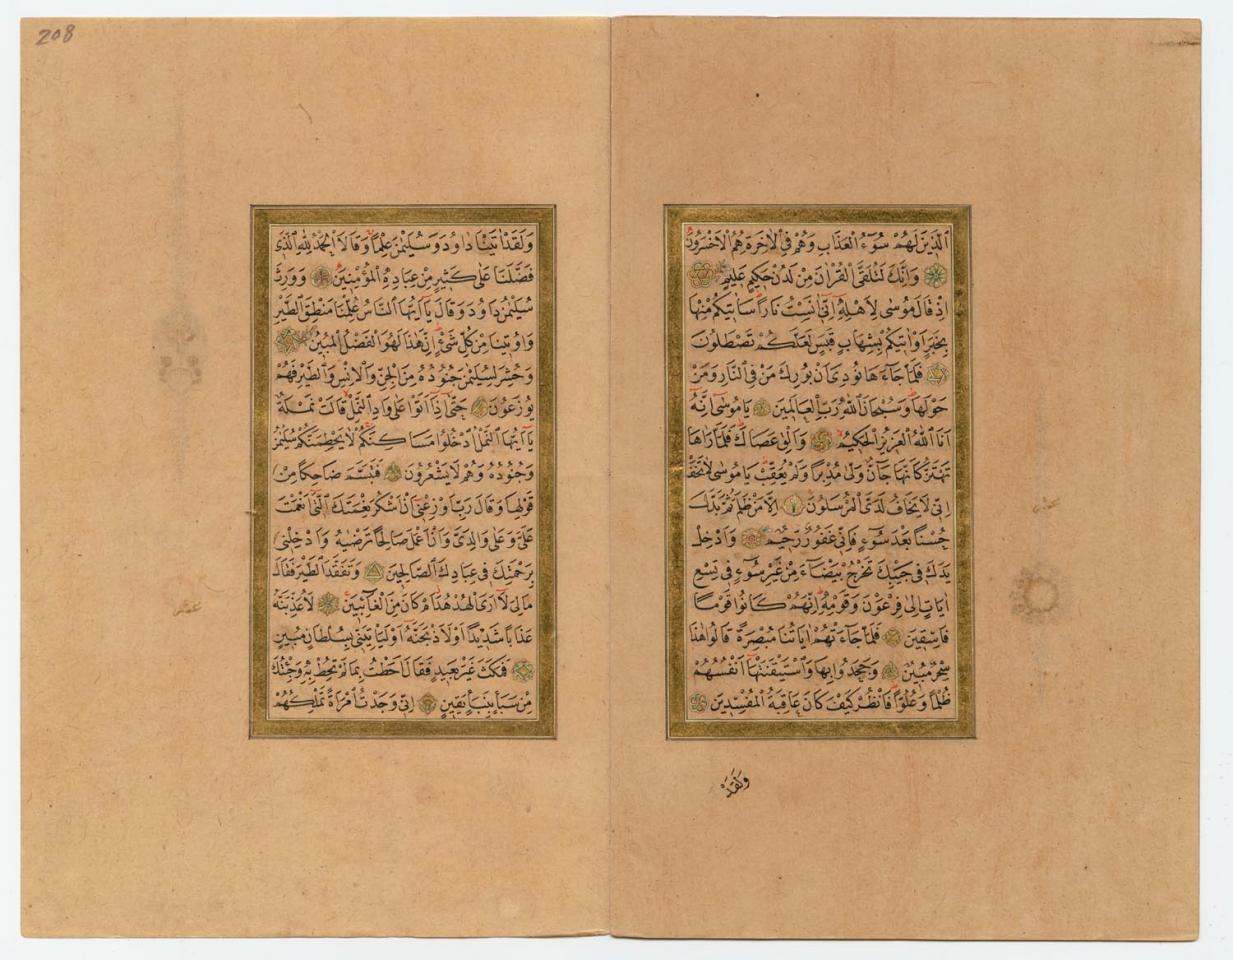 اَلَّذِينَ لَهُمْ سُوٓءُ الْعَذَابِ وَهُمْ فِي الْاٰخِرَةِ هُمُ الْاَخْسَرُونَ
وَاِنَّكَ لَتُلَقَّى الْقُرْاٰنَ مِنْ لَدُنْ حَكِيمٍ عَلِيمٍ
اِذْ قَالَ مُوسٰى لِاَهْلِهِٓ اِنِّٓي اٰنَسْتُ نَارًا سَاٰتِيكُمْ مِنْهَا
بِخَبَرٍ اَوْ اٰتِيكُمْ بِشِهَابٍ قَبَسٍ لَعَلَّكُمْ تَصْطَلُونَ
فَلَمَّا جَآءَهَا نُودِيَ اَنْ بُورِكَ مَنْ فِي النَّارِ وَمَنْ
حَوْلَهَا وَسُبْحَانَ اللّٰهِ رَبِّ الْعَالَمِينَ يَا مُوسٰٓى اِنَّهُٓ
اَنَا اللّٰهُ الْعَزِيزُ الْحَكِيمُ وَاَلْقِ عَصَاكَ فَلَمَّا رَاٰهَا
تَهْتَزُّ كَاَنَّهَا جَآنٌّ وَلّٰى مُدْبِرًا وَلَمْ يُعَقِّبْ يَا مُوسٰى لَا تَخَفْ
اِنِّي لَا يَخَافُ لَدَيَّ الْمُرْسَلُونَ اِلَّا مَنْ ظَلَمَ ثُمَّ بَدَّلَ
حُسْنًا بَعْدَ سُوٓءٍ فَاِنِّي غَفُورٌ رَحِيمٌ وَاَدْخِلْ
يَدَكَ فِي جَيْبِكَ تَخْرُجْ بَيْضَآءَ مِنْ غَيْرِ سُوٓءٍ فِي تِسْعِ
اٰيَاتٍ اِلٰى فِرْعَوْنَ وَقَوْمِهِ اِنَّهُمْ كَانُوا قَوْمًا
فَاسِقِينَ فَلَمَّا جَآءَتْهُمْ اٰيَاتُنَا مُبْصِرَةً قَالُوا هٰذَا
سِحْرٌ مُبِينٌ وَجَحَدُوا بِهَا وَاسْتَيْقَنَتْهَٓا اَنْفُسُهُمْ
ظُلْمًا وَعُلُوًّا فَانْظُرْ كَيْفَ كَانَ عَاقِبَةُ الْمُفْسِدِينَ
وَلَقَدْ
208
وَلَقَدْ اٰتَيْنَا دَاوُدَ وَسُلَيْمٰنَ عِلْمًا وَقَالَا الْحَمْدُ لِلّٰهِ الَّذِي
فَضَّلَنَا عَلٰى كَثِيرٍ مِنْ عِبَادِهِ الْمُؤْمِنِينَ وَوَرِثَ
سُلَيْمٰنُ دَاوُدَ وَقَالَ يَٓا اَيُّهَا النَّاسُ عُلِّمْنَا مَنْطِقَ الطَّيْرِ
وَاُوتِينَا مِنْ كُلِّ شَيْءٍ اِنَّ هٰذَا لَهُوَ الْفَضْلُ الْمُبِينُ
وَحُشِرَ لِسُلَيْمٰنَ جُنُودُهُ مِنَ الْجِنِّ وَالْاِنْسِ وَالطَّيْرِ فَهُمْ
يُوزَعُونَ حَتّٰٓى اِذَٓا اَتَوْا عَلٰى وَادِ النَّمْلِ قَالَتْ نَمْلَةٌ
يَٓا اَيُّهَا النَّمْلُ ادْخُلُوا مَسَاكِنَكُمْ لَا يَحْطِمَنَّكُمْ سُلَيْمٰنُ
وَجُنُودُهُ وَهُمْ لَا يَشْعُرُونَ فَتَبَسَّمَ ضَاحِكًا مِنْ
قَوْلِهَا وَقَالَ رَبِّ اَوْزِعْنِٓي اَنْ اَشْكُرَ نِعْمَتَكَ الَّتِٓي اَنْعَمْتَ
عَلَيَّ وَعَلٰى وَالِدَيَّ وَاَنْ اَعْمَلَ صَالِحًا تَرْضٰيهُ وَاَدْخِلْنِي
بِرَحْمَتِكَ فِي عِبَادِكَ الصَّالِحِينَ وَتَفَقَّدَ الطَّيْرَ فَقَالَ
مَا لِيَ لَٓا اَرَى الْهُدْهُدَ اَمْ كَانَ مِنَ الْغَٓائِبِينَ لَاُعَذِّبَنَّهُ
عَذَابًا شَدِيدًا اَوْ لَاَذْبَحَنَّهُٓ اَوْ لَيَأْتِيَنِّي بِسُلْطَانٍ مُبِينٍ
فَمَكَثَ غَيْرَ بَعِيدٍ فَقَالَ اَحَطْتُ بِمَا لَمْ تُحِطْ بِهِ وَجِئْتُكَ
مِنْ سَبَأٍ بِنَبَأٍ يَقِينٍ اِنِّي وَجَدْتُ امْرَاَةً تَمْلِكُهُمْ